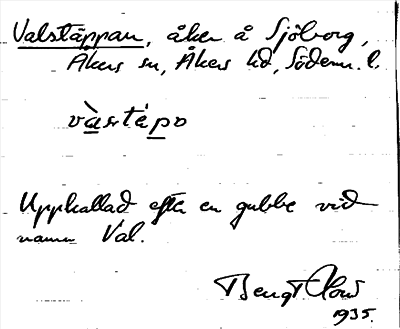 Valstäppan, åker å Sjöborg,
Åkers sn, Åkers hd, Söderm. l.
Uppkallad efter en gubbe vid
namn Val.
Bengt
1935.